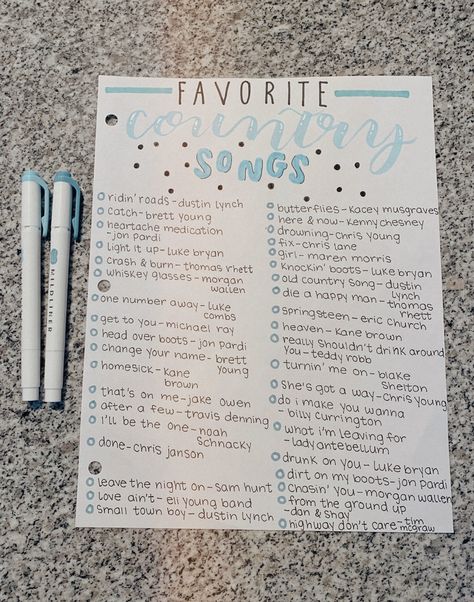 FAVORITE
country
SONGS
ridin' roads - dustin lynch
catch - brett young
heartache medication
- jon pardi
light it up - luke bryan
crash & burn - thomas rhett
whiskey glasses - morgan
wallen
one number away - luke
combs
get to you - michael ray
head over boots - jon pardi
change your name - brett
young
homesick - kane
brown
that's on me - jake owen
after a few - travis denning
i'll be the one - noah
schnacky
done - chris janson
leave the night on - sam hunt
love ain't - eli young band
small town boy - dustin lynch
butterflies - kacey musgraves
here & now - kenny chesney
drowning - chris young
fix - chris lane
girl - maren morris
knockin' boots - luke bryan
old country song - dustin
lynch
die a happy man - thomas
rhett
springsteen - eric church
heaven - kane brown
really shouldn't drink around
you - teddy robb
turnin' me on - blake
shelton
she's got a way - chris young
do i make you wanna
- billy currington
what i'm leaving for
- lady antebellum
drunk on you - luke bryan
dirt on my boots - jon pardi
chasin' you - morgan wallen
from the ground up
- dan & shay
highway don't care - tim
mcgraw
MILDLINER